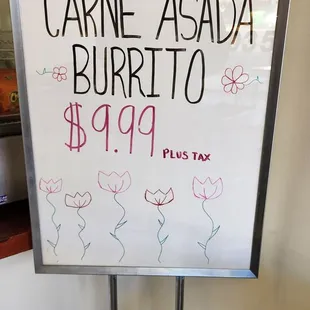 CARNE ASADA
BURRITO
$9.99 PLUS TAX